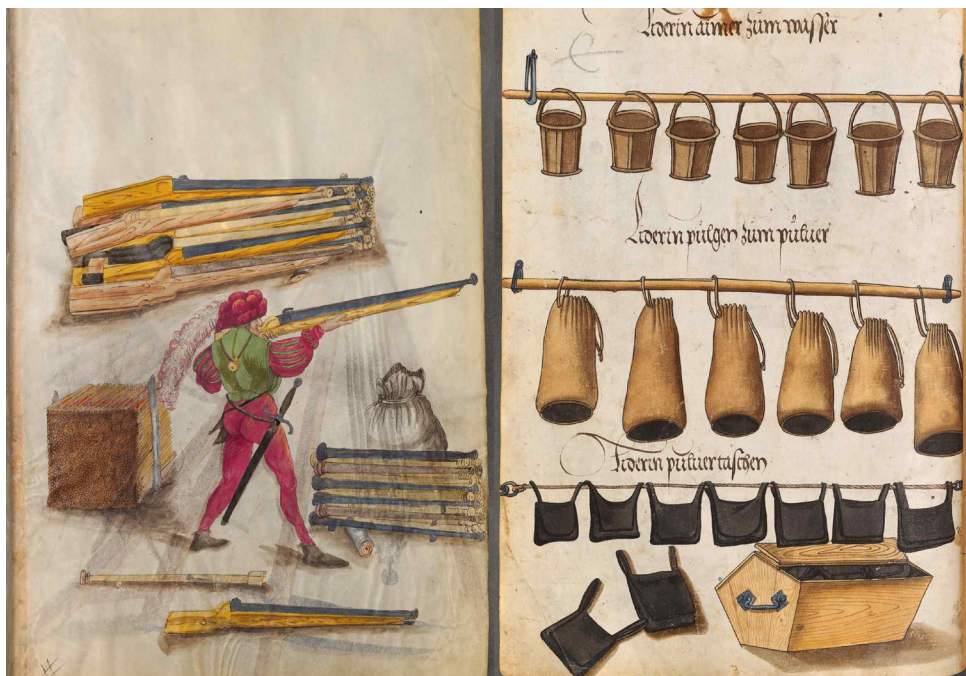 Liderin aimer zům wasser
Liderin pulgen zům půluer
Liderin puluer taschen